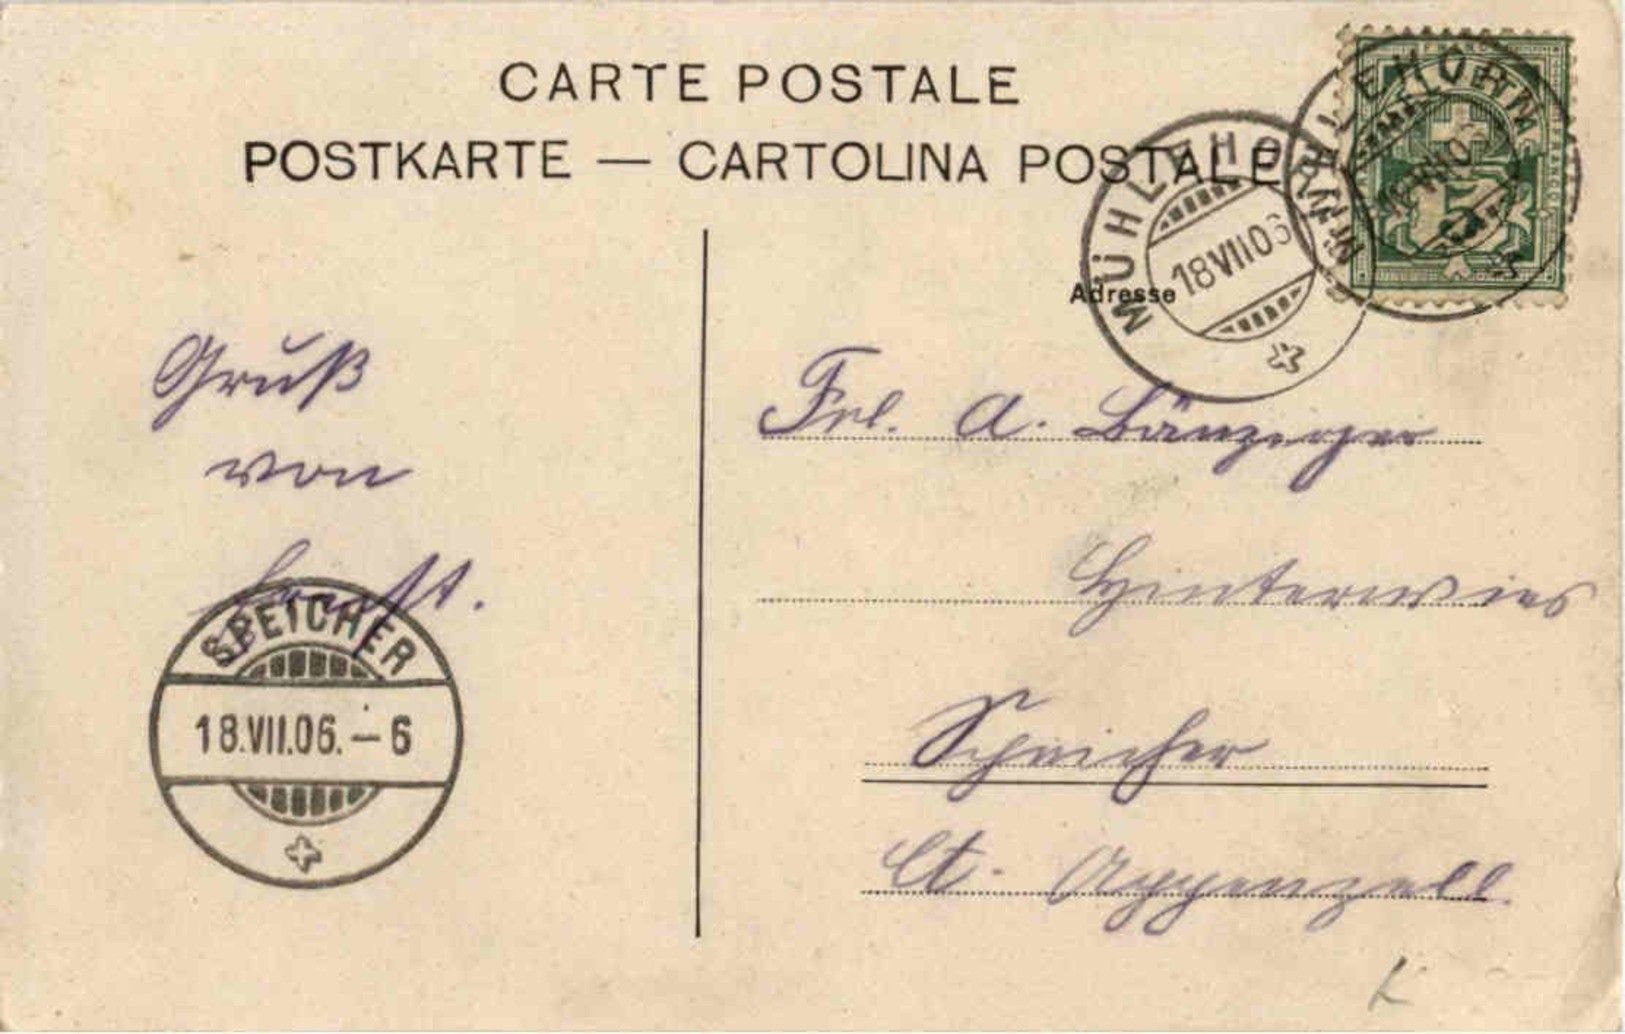 CARTE POSTALE
POSTKARTE — CARTOLINA POSTALE
MÜHLEHORN
18 VII 06
MÜHLEHORN
FRANCO
5
Adresse
Gruß
von
SPEICHER
18.VII.06.–6
Frl. A. Bänziger
Hinterwies
Speicher
Ct. Appenzell